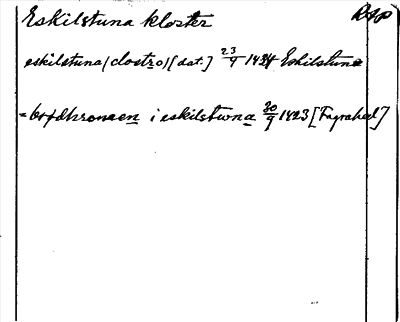 Eskilstuna kloster
eskilstuna (clostro) [dat.] 23/9 1424 Eskilstuna
i eskilstwna 30/9 1423 [Fagrahed]